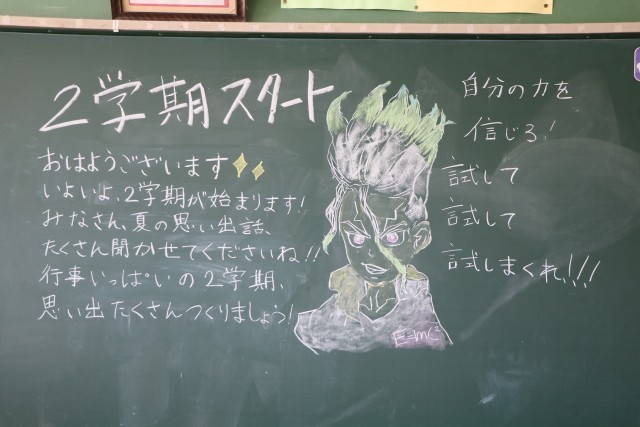 2学期スタート
おはようございます
いよいよ、2学期が始まります!
みなさん、夏の思い出話、
たくさん聞かせてくださいね!!
行事いっぱいの2学期、
思い出たくさんつくりましょう!
自分の力を
信じろ!
試して
試して
試しまくれ!!!
E=mc²